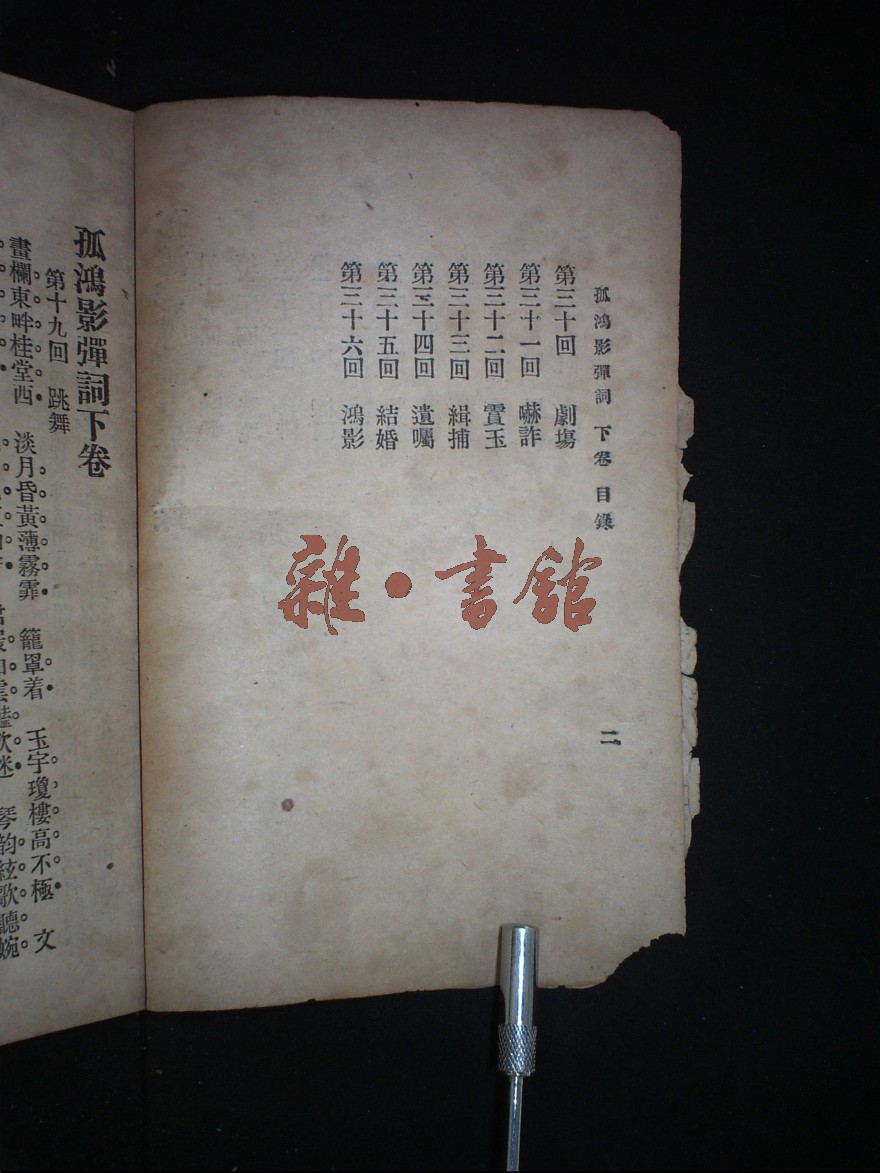 孤鴻影彈詞 下卷 目錄
二
第三十回 劇塲
第三十一回 嚇詐
第三十二回 賣玉
第三十三回 緝捕
第三十四回 遺囑
第三十五回 結婚
第三十六回 鴻影
雜·書館
孤鴻影彈詞下卷
第十九回 跳舞
畫欄東畔桂堂西 淡月昏黃薄霧霏 籠罩着 玉宇瓊樓高不極 文
琴韵絃歌聽婉